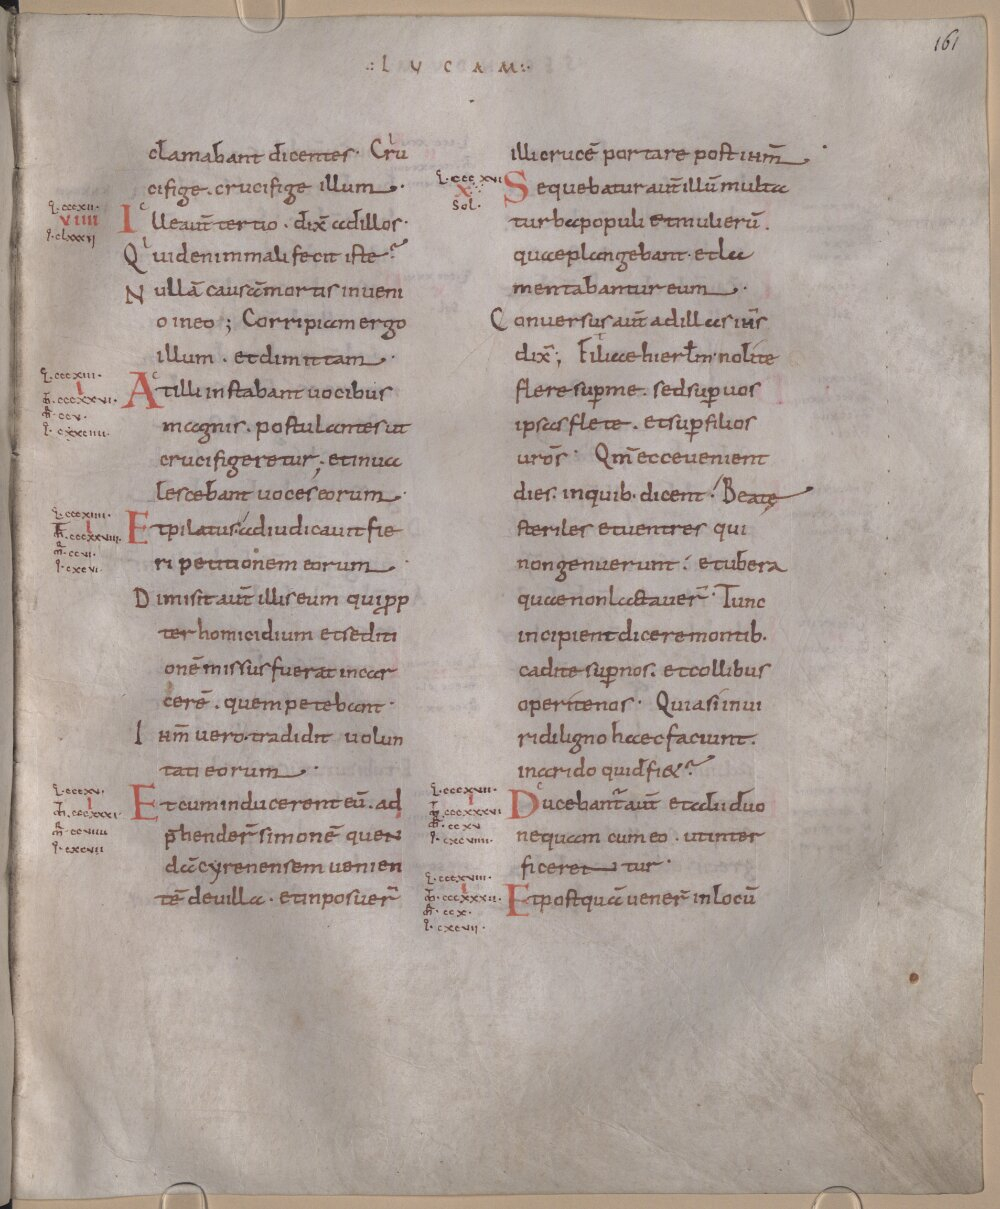 161
·:LVCAM:·
clamabant dicentes· Cru
cifige. crucifige illum.
l·cccxii·
viiii
i·clxxxii
Ille aut̄ tertio· dix̄ ad illos·
Quid enim mali fecit iste?
Nullā causā mortis inveni
o in eo; Corripiam ergo
illum. et dimittam·
l·cccxiii·
i
m̄·cccxxvi·
m̄·ccv·
i·cxciiii·
At illi instabant vocibus
magnis. postulantes ut
crucifigeretur; et inva
lescebant voces eorum·
l·cccxiiii·
i
m̄·cccxxviii·
m̄·ccvi·
i·cxcvi·
Et pilatus adiudicavit fie
ri petitionem eorum·
Dimisit aut̄ illis eum qui p̱p
ter homicidium et sediti
onē missus fuerat in car
cerē. quem petebant·
Ihm̄ vero. tradidit volun
tati eorum·
l·cccxv·
i
m̄·cccxxxi·
m̄·ccviiii·
i·cxcvii
Et cum inducerent eū. ad
p̄henderꝰ simonē quen
dā cyrenensem venien
tē de villa. et inposuer̄
illi crucē portare post ihm̄·
l·cccxvi
x
Sol·
Sequebatur aut̄ illū multa
turba populi et mulierū.
quae plangebant. et la
mentabantur eum·
Conversus aut̄ ad illas ih̄s
dix̄; Filiae hierl̄m nolite
flere sup̱ me. sed sup̱ vos
ipsas flete. et sup̱ filios
vr̄os· Qm̄ ecce venient
dies. in quib· dicent! Beatę
steriles et ventres qui
non genuerunt! et ubera
quae non lactaver̄· Tunc
incipient dicere montib.
cadite sup̱ nos. et collibus
operite nos· Quia si in vi
ridi ligno haec faciunt.
in arido quid fi&?
l·cccxvii·
i
m̄·cccxxxvi
m̄·ccxv
i·cxcviiii·
Ducebant̄ aut̄ et alii duo
nequam cum eo. ut inter
ficerentur·
l·cccxviii·
i
m̄·cccxxxii·
m̄·ccx·
i·cxcvii·
Et postquā vener̄ in locū